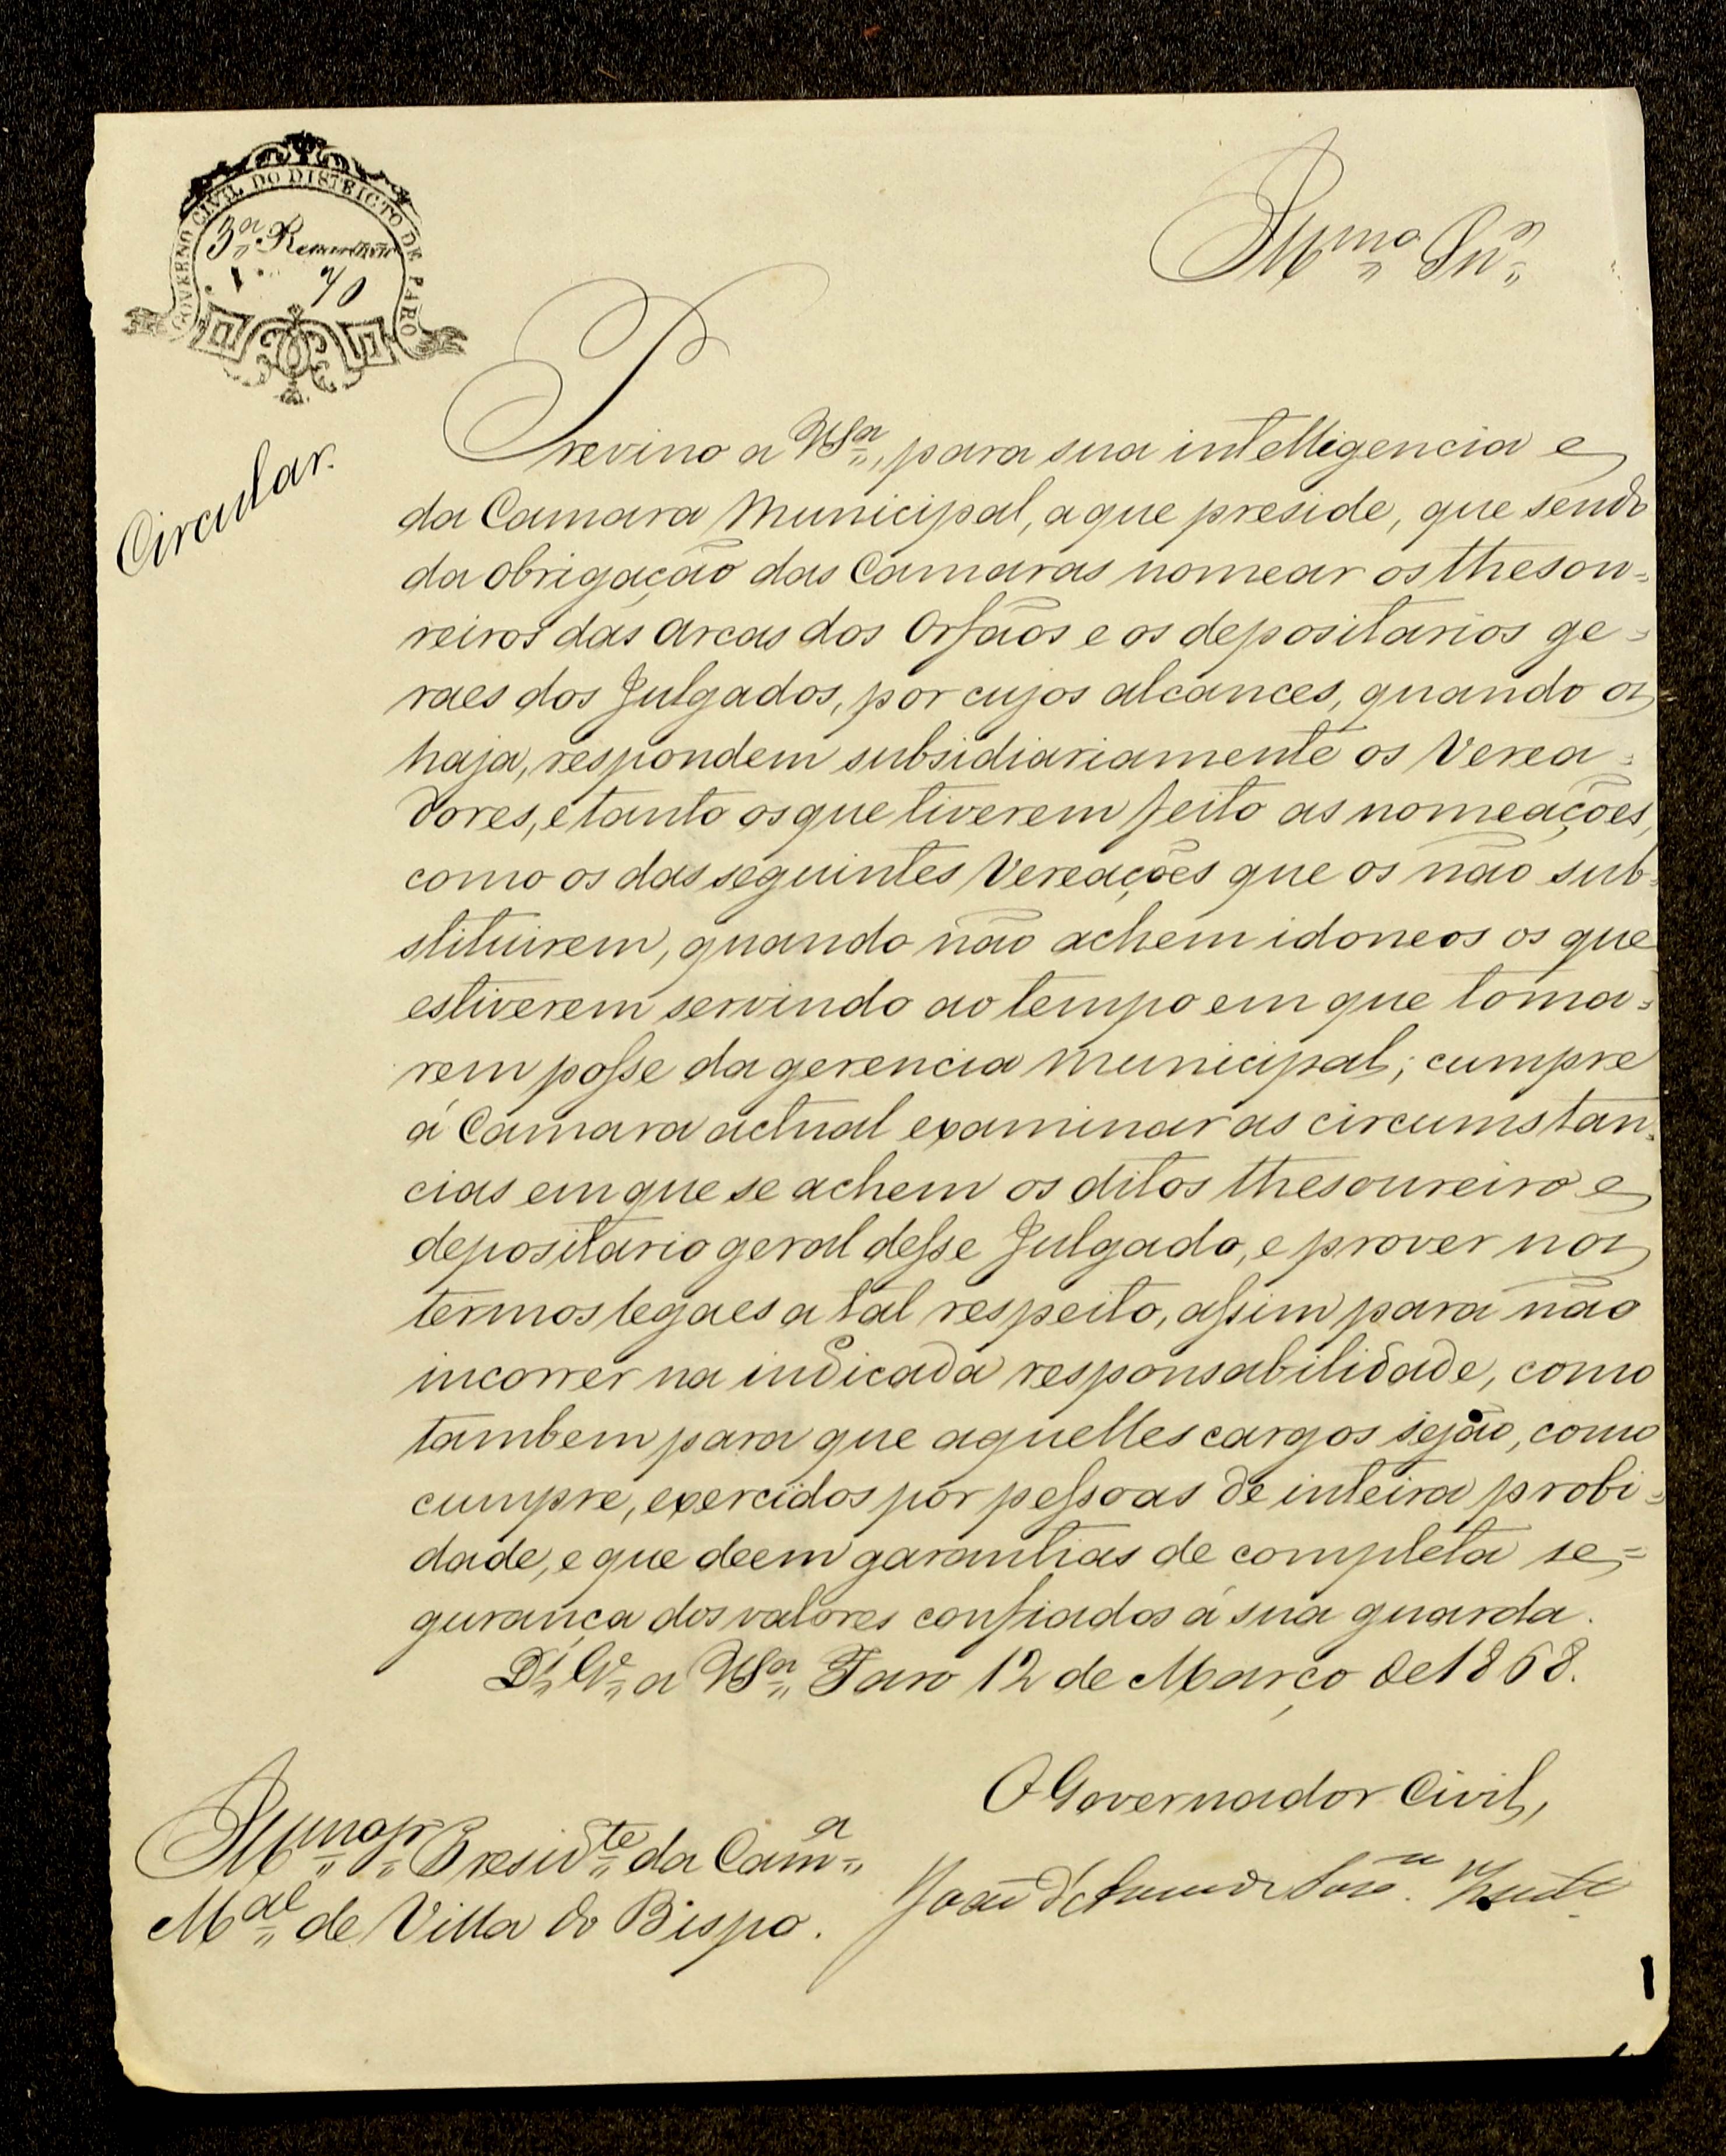 GOVERNO CIVIL DO DISTRICTO DE FARO
3.ª
70
Illmo Snr
Circular.
Previno a VSa, para sua intelligencia e
da Camara Municipal, a que preside, que sendo
da obrigação das Camaras nomear os thesou=
reiros das arcas dos Orfãos e os depositarios ge=
raes dos Julgados, por cujos alcances, quando os
haja, respondem subsidiariamente os Verea=
dores, e tanto os que tiverem feito as nomeações,
como os das seguintes Vereações que os não sub=
stituirem, quando não achem idoneos os que
estiverem servindo ao tempo em que toma=
rem posse da gerencia Municipal; cumpre
á Camara actual examinar as circumstan=
cias em que se achem os ditos thesoureiro e
depositario geral desse Julgado, e prover nos
termos legaes a tal respeito, assim para não
incorrer na indicada responsabilidade, como
tambem para que aquelles cargos sejão, como
cumpre, exercidos por pessoas de inteira probi=
dade, e que deem garantias de completa se=
gurança dos valores confiados á sua guarda.
Ds Ge a VSa Faro 12 de Março de 1868.
O Governador Civil,
Illmo Sr Presidte da Camª
Mal de Villa do Bispo.
João